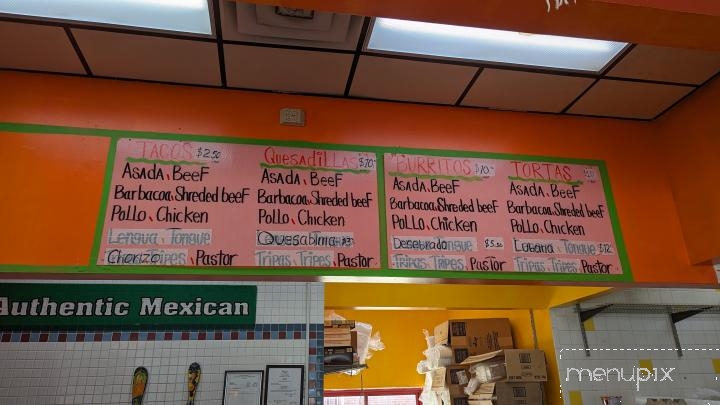 TACOS $2.50
ASADA, BEEF
Barbacoa, Shreded beef
Pollo, Chicken
Lengua, Tongue
Tripes, Pastor
QuesadiLLAS $10.
ASADA, BEEF
Barbacoa, Shreded beef
Pollo, Chicken
Tripas, Tripes, Pastor
BURRITOS $10.
ASADA, BEEF
Barbacoa, Shreded beef
Pollo, Chicken
Desebrado $5.50
Tripas, Tripes, Pastor
TORTAS
ASADA, BEEF
Barbacoa, Shreded beef
Pollo, Chicken
$12
Tripas, Tripes, Pastor
Authentic Mexican
menupix